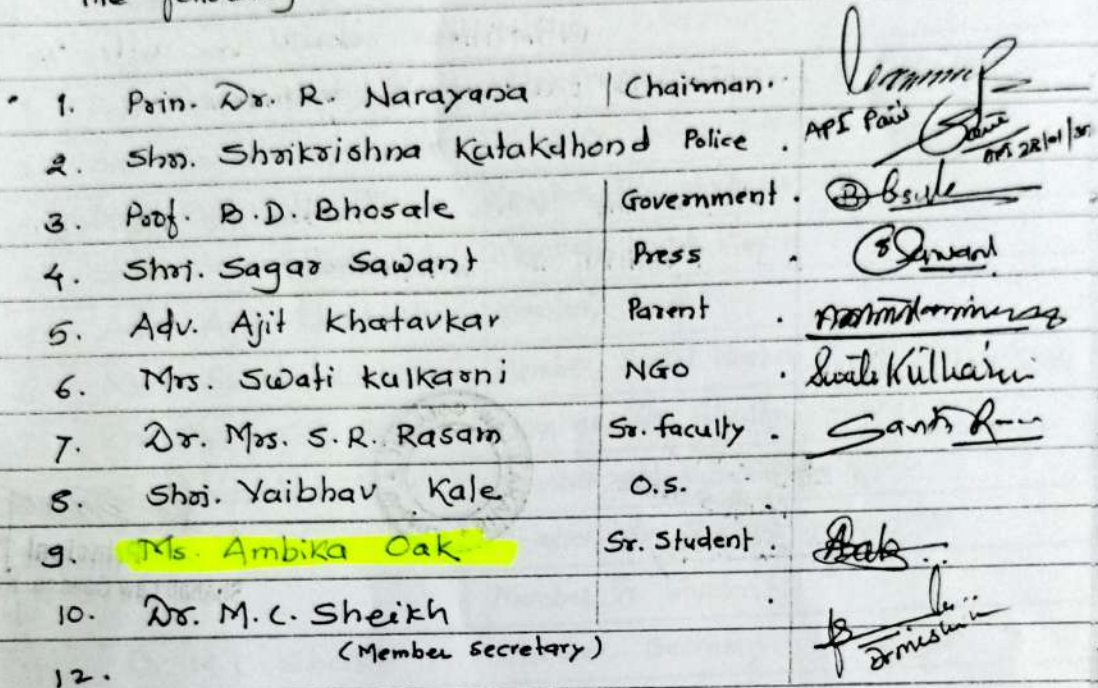 The following
1. Prin. Dr. R. Narayana Chairman.
2. Shri. Shrikrishna Katakdhond Police. API Pawar 28/01/25
3. Prof. B.D. Bhosale Government.
4. Shri. Sagar Sawant Press. Sawant
5. Adv. Ajit Khatavkar Parent.
6. Mrs. Swati Kulkarni NGO. Swati Kulkarni
7. Dr. Mrs. S.R. Rasam Sr. faculty.
8. Shri. Vaibhav Kale O.S.
9. Ms. Ambika Oak Sr. Student. Oak
10. Dr. M.C. Sheikh
(Member Secretary)
12.